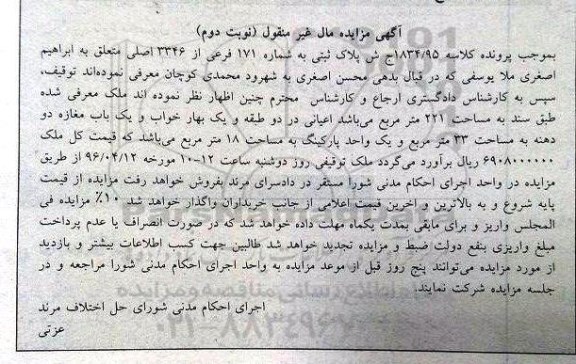 آگهی مزایده مال غیر منقول (نوبت دوم)
بموجب پرونده کلاسه ۱۸۳۴/۹۵ج ش پلاک ثبتی به شماره ۱۷۱ فرعی از ۳۳۴۶ اصلی متعلق به ابراهیم
اصغری ملا یوسفی که در قبال بدهی محسن اصغری به شهرود محمدی کوچان معرفی نموده‌اند توقیف،
سپس به کارشناس دادگستری ارجاع و کارشناس محترم چنین اظهار نظر نموده اند ملک معرفی شده
طبق سند به مساحت ۲۲۱ متر مربع می‌باشد اعیانی در دو طبقه و یک بهار خواب و یک باب مغازه دو
دهنه به مساحت ۳۳ متر مربع و یک واحد پارکینگ به مساحت ۱۸ متر مربع می‌باشد که قیمت کل ملک
۶۹۰۸۰۰۰۰۰۰ ریال برآورد می‌گردد ملک توقیفی روز دوشنبه ساعت ۱۲-۱۰ مورخه ۹۶/۰۴/۱۲ از طریق
مزایده در واحد اجرای احکام مدنی شورا مستقر در دادسرای مرند بفروش خواهد رفت مزایده از قیمت
پایه شروع و به بالاترین و اخرین قیمت اعلامی از جانب خریداران واگذار خواهد شد ۱۰٪ مزایده فی
المجلس واریز و برای مابقی بمدت یکماه مهلت داده خواهد شد که در صورت انصراف یا عدم پرداخت
مبلغ واریزی بنفع دولت ضبط و مزایده تجدید خواهد شد طالبین جهت کسب اطلاعات بیشتر و بازدید
از مورد مزایده می‌توانند پنج روز قبل از موعد مزایده به واحد اجرای احکام مدنی شورا مراجعه و در
جلسه مزایده شرکت نمایند.
اجرای احکام مدنی شورای حل اختلاف مرند
عزتی